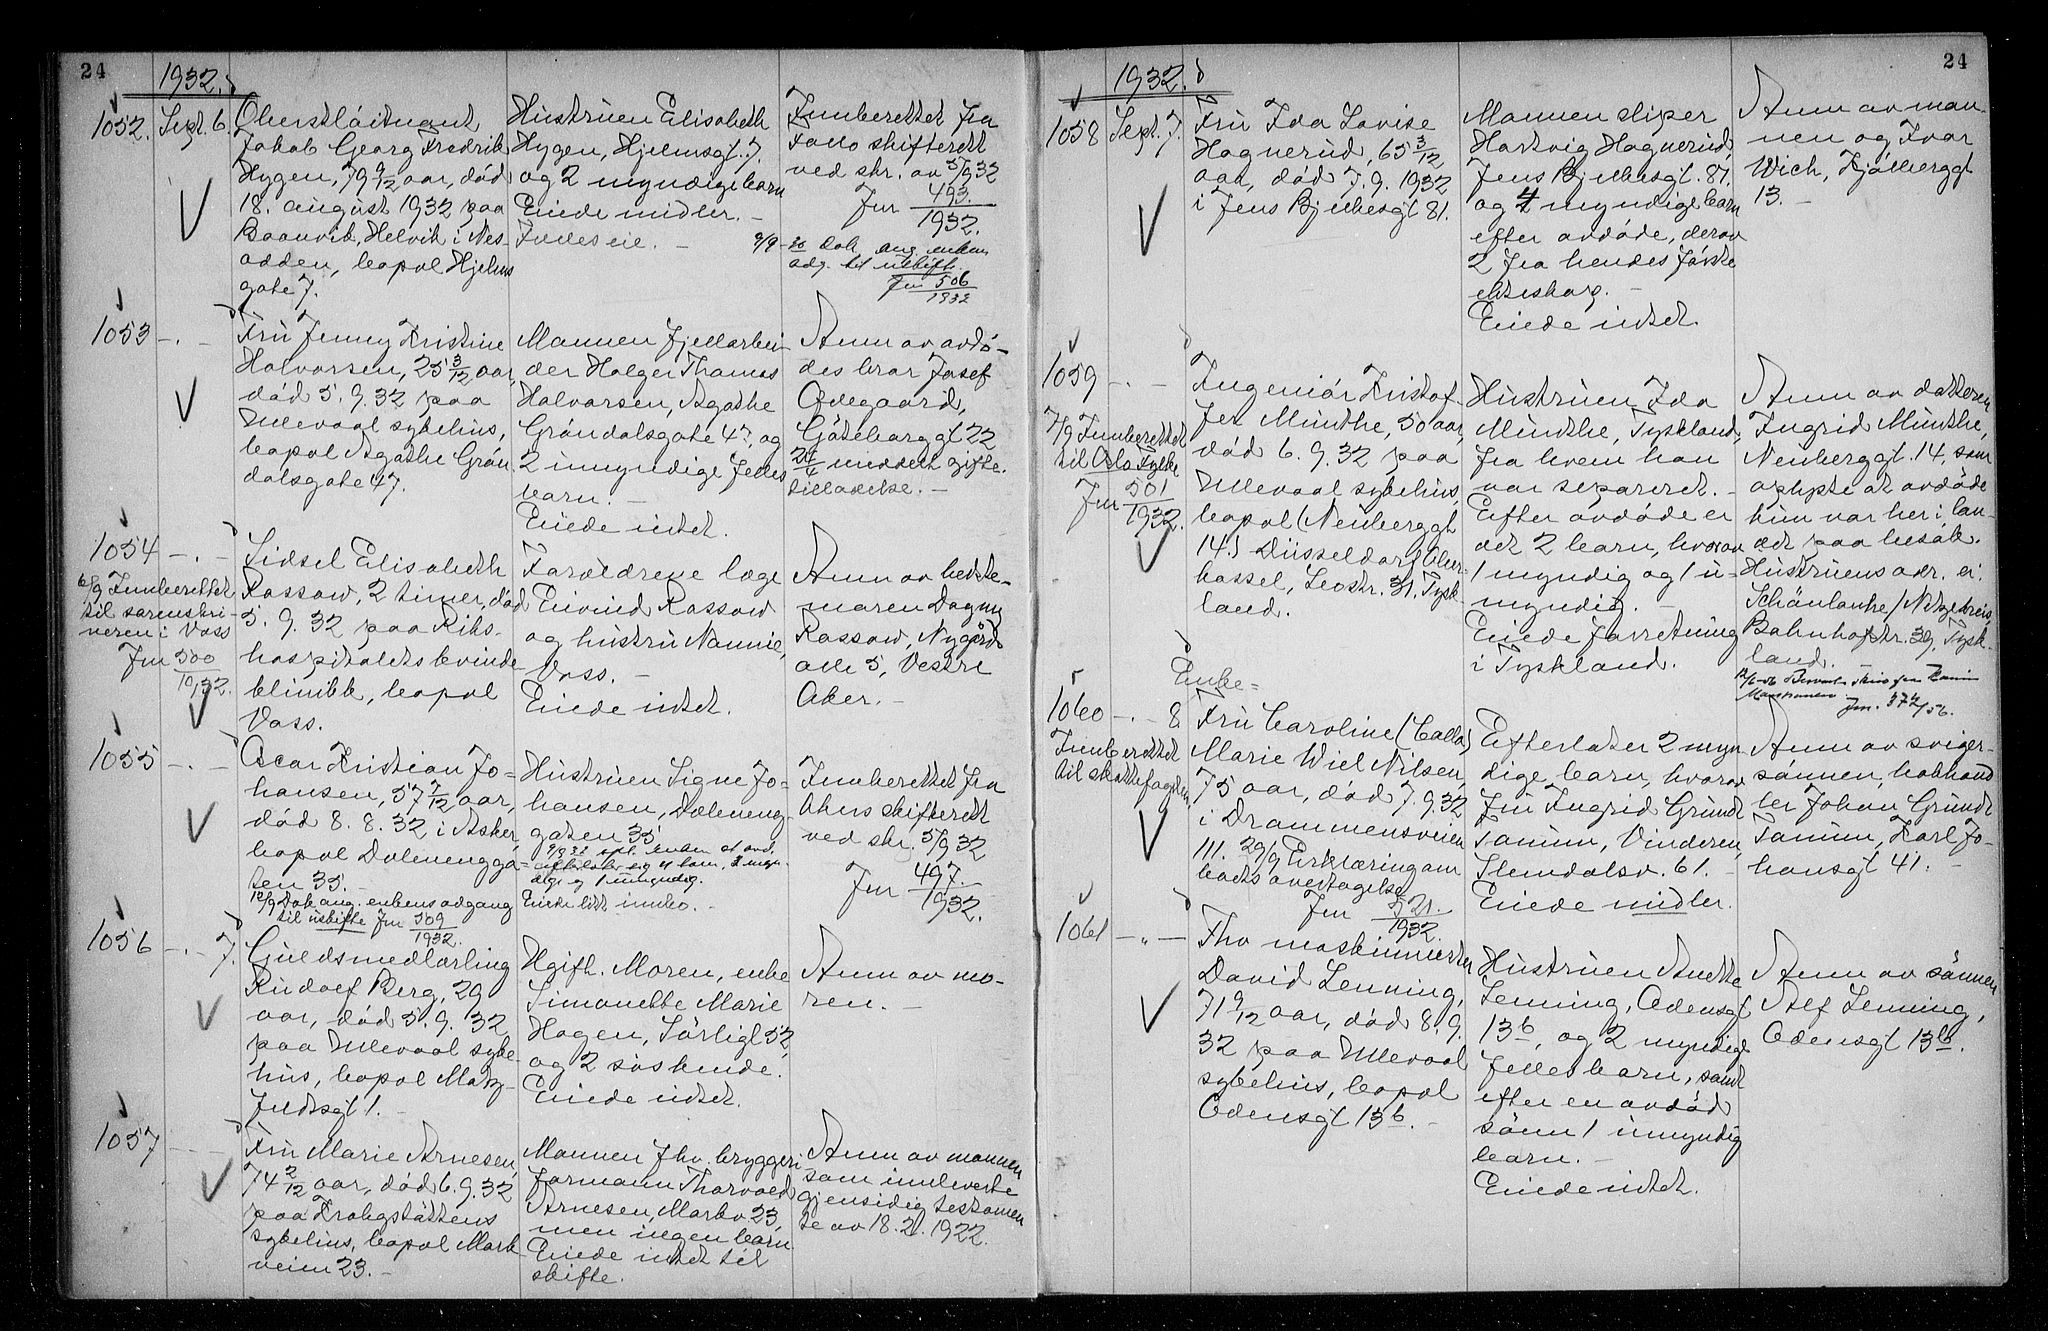 24
1932.
1052. Sept. 6.
Oberstløitnant
Jakob Georg Fredrik
Hygen, 79 9/12 aar, død
18. august 1932 paa
Helvik i Nes-
odden, bopæl Hjelms
gate 7.
Hustruen Elisabeth
Hygen, Hjelmsgt. 7.
og 2 myndige barn
Eiede midler. -
Fælleseie. -
Innberettet fra
Follo skifterett
ved skr. av 5/9 32
Jnr 493.
1932.
9/9 - 32 Dok. ang. enkens
adg. til uskifte.
Jnr 506
1932
1053 -.-
Fru Jenny Kristine
Halvorsen, 25 3/12 aar,
død 5. 9. 32 paa
Ullevaal sykehus,
bopæl Agathe Grøn
dalsgate 47.
Mannen fjellarbei-
der Holger Thomas
Halvorsen, Agathe
Grøndalsgate 47, og
2 umyndige felles
barn. -
Eiede intet.
Anm. av avdø-
des bror Josef
Ødegaard,
Gøteborggt 22
meddelt gifte-
tilladelse. -
1054 -.-
6/9 Innberettet
til sorenskri-
veren i Voss
Jnr 500
1932.
Sidsel Elisabeth
Rassow, 2 timer, død
5. 9. 32 paa Riks-
hospitalets kvinde
klinikk, bopæl
Voss.
Foreldrene læge
Eivind Rassow
og hustru Nannie,
Voss. -
Eiede intet.
Anm. av beste-
moren Dagny
Rassow, Nygårds
alle 5, Vestre
Aker. -
1055 -.-
Oscar Kristian Jo-
hansen, 57 7/12 aar,
død 8. 8. 32 i Asker
bopæl Dælenengga-
ten 35. -
12/9 Dok. ang. enkens adgang
til uskifte Jnr 509
1932.
Hustruen Signe Jo-
hansen, Dæleneng-
gaten 35
9/9 32 opl. enken at avd.
efterlot sig 4 barn, 3 myn-
dige og 1 umyndig.
Eiede litt innbo. -
Innberettet fra
Akers skifterett
ved skr. 5/9 32
Jnr 497.
1932.
1056 -.- 7.
Gullsmedlærling
Rudolf Berg, 29
aar, død 5. 9. 32
paa Ullevaal syke-
hus, bopæl Matz-
feldtsgt 1. -
Ugift. Moren, enke
Simonette Marie
Hagen, Sørligt 52,
og 2 søskende.
Eiede intet.
Anm av mo-
ren. -
1057 - -
Fru Marie Arnesen,
74 2/12 aar, død 6. 9. 32
paa Frohgstøttens
sykehus, bopæl Mark-
veien 23. -
Mannen fhv. bryggeri
formann Thorvald
Arnesen, Markv 23,
men ingen barn
Eiede intet til
skifte.
Anm av mannen
som innleverte
gjensidig testamen
te av 18. 2. 1922.
24
1932.
1058 Sept. 7.
Fru Ida Lovise
Hagnerud, 65 3/12
aar, død 7. 9. 1932
i Jens Bjelkesgt 81.
Mannen sliper
Hartvig Hagnerud,
Jens Bjelkesgt. 81.
og 4 myndige barn
efter avdøde, derav
2 fra hendes første
ekteskap. -
Eiede intet.
Anm av man-
nen og Ivar
Wich, Kjølberggt
13. -
1059 -.-
7/9 Innberettet
til Oslo fylke
Jnr 501
1932.
Ingeniør Kristof-
fer Münthe, 50 aar,
død 6. 9. 32 paa
Ullevaal sykehus
bopæl (Neuberggt
14.) Düsseldorf Ober-
kassel, Leostr. 31. Tysk-
land.
Hustruen Ida
Münthe, Tyskland,
fra hvem han
var separeret. -
Efter avdøde er
det 2 barn, hvorav
1 myndig og 1 u-
myndig. -
Eiede forretning
i Tyskland.
Anm av datteren
Ingrid Münthe,
Neuberggt. 14, som
oplyste at avdøde
kun var her i lan-
det paa besøk.
Hustruens adr. er:
Schönlanke/Netzekreis,
Bahnhofstr. 39, Tysk-
land.
Jnr. 372/56.
1060 -.- 8.
Innberettet
til skattefogden
Enke =
Fru Caroline (Calla)
Marie Wiel Nilsen,
75 aar, død 7. 9. 32
i Drammensveien
111. 29/9 Erklæring om
boets overtagelse
Jnr 521.
1932.
Efterlater 2 myn
dige barn, hvorav
fru Ingrid Grundt
Tanum, Vinderen,
Slemdalsv. 61. -
Eiede midler.
Anm av sviger-
sønnen, bokhand
ler Johan Grundt
Tanum, Karl Jo-
hansgt 41. -
1061 -"-
Fhv maskinmester
David Lenning,
71 9/12 aar, død 8. 9.
32 paa Ullevaal
sykehus, bopæl
Odensgt 13b. -
Hustruen Anette
Lenning, Odensgt
13b, og 2 myndige
felles barn, samt
efter en avdød
sønn 1 umyndig
barn. -
Eiede intet.
Anm av sønnen
Alf Lenning,
Odensgt 13b.